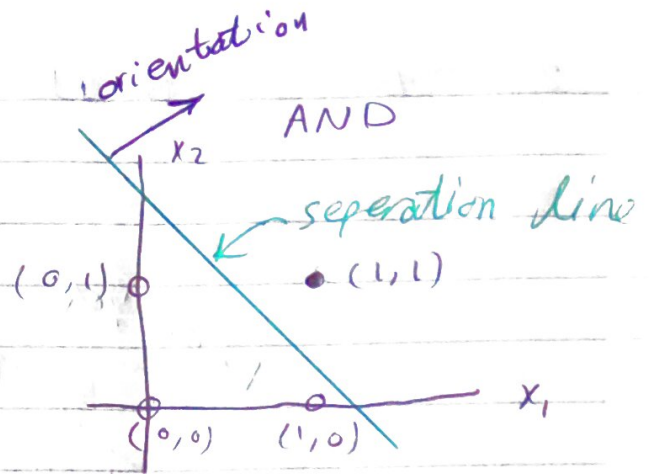 orientation
AND
x2
seperation line
(0,1)
(1,1)
x1
(0,0)
(1,0)